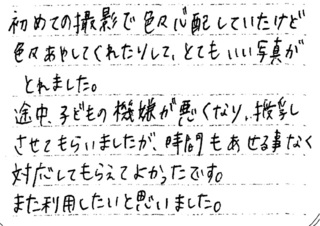 初めての撮影で色々心配していたけど
色々あやしてくれたりして、とてもいい写真が
とれました。
途中、子どもの機嫌が悪くなり、授乳し
させてもらいましたが、時間もあせる事なく
対応してもらえてよかったです。
また利用したいと思いました。